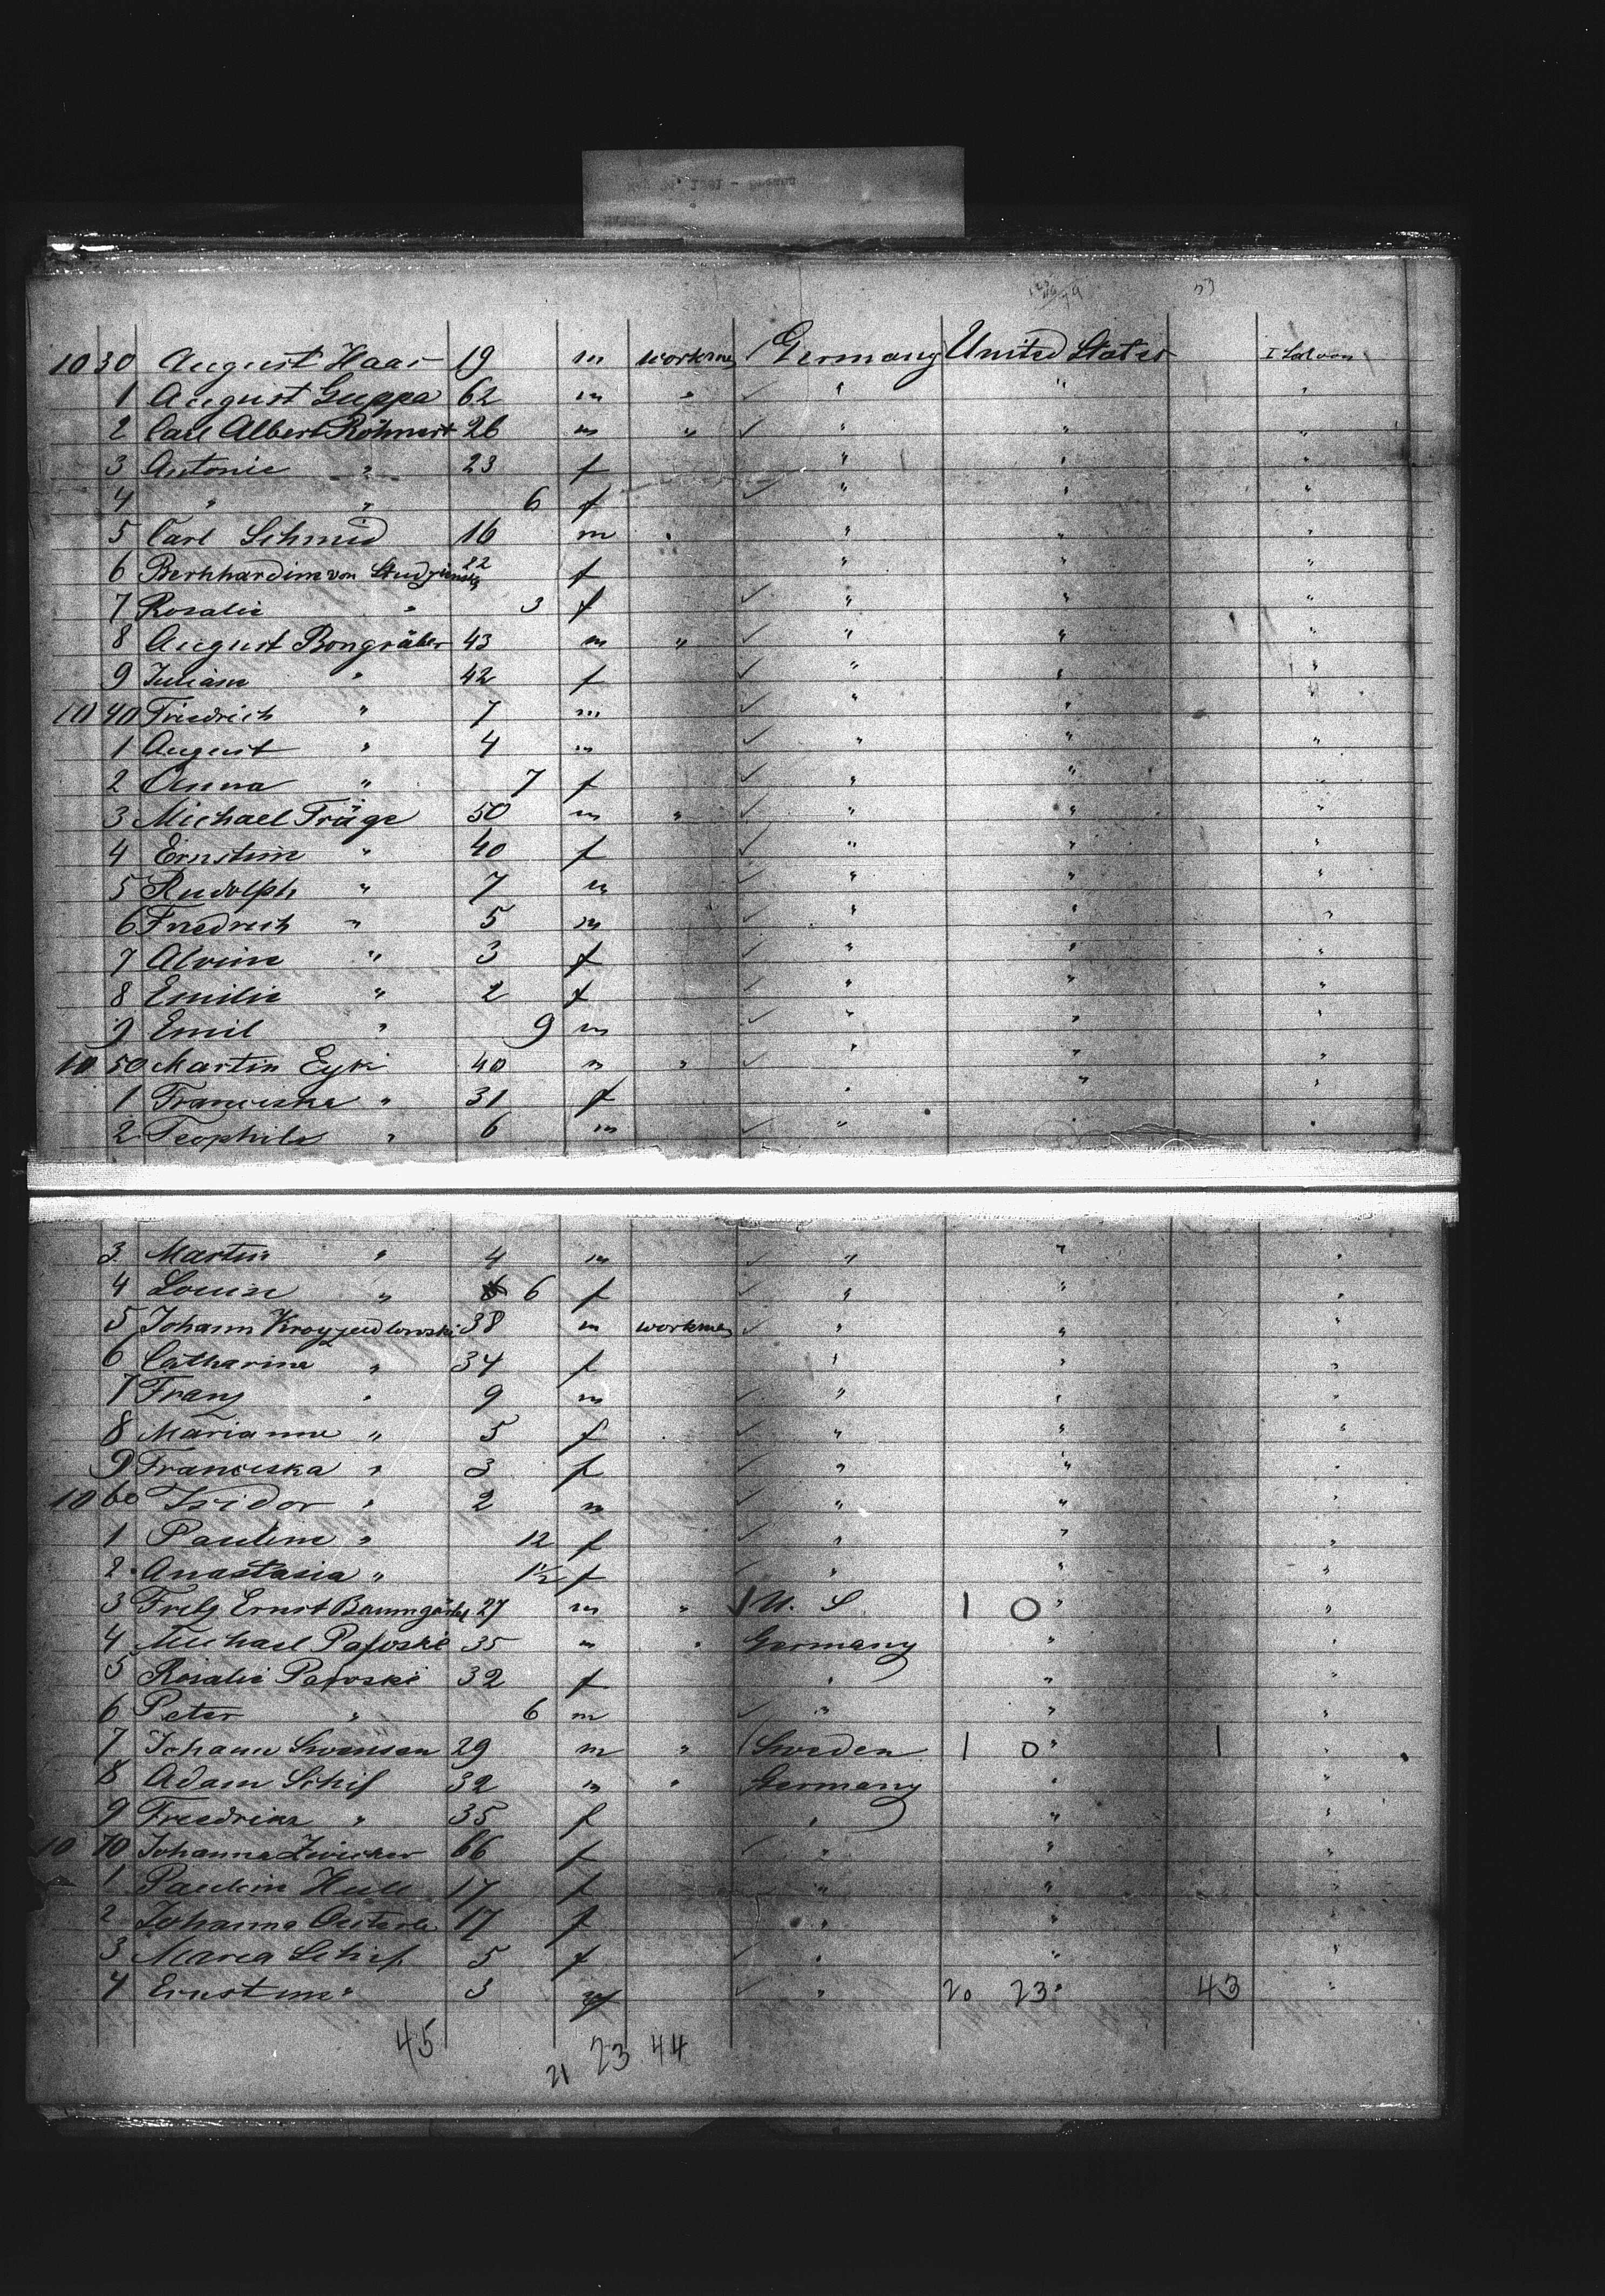 10 30 August Haas 19 m workman Germany United States I Saloon
1 August Guppa 62 m " " " "
2 Carl Albert Röhnert 26 m " " " "
3 Antonie " 23 f " " "
4 " " 6 f " " "
5 Carl Schmid 16 m " " " "
6 Bernhardine von 22 f " " "
7 Rosalie " 3 f " " "
8 August Bongräber 43 m " " " "
9 " 42 f " " "
10 40 Friedrich " 7 m " " "
1 August " 4 m " " "
2 Anna " 7 f " " "
3 Michael Träge 50 m " " " "
4 Ernstine " 40 f " " "
5 Rudolph " 7 m " " "
6 Friedrich " 5 m " " "
7 Alvine " 3 f " " "
8 Emilie " 2 f " " "
9 Emil " 9 m " " "
10 50 Martin Eyk 40 m " " " "
1 Franciska " 31 f " " "
2 Teophils " 6 m " " "
3 Martin " 4 m " " "
4 Louise " 6 f " " "
5 Johann 38 m workman " " "
6 Catharine " 34 f " " "
7 Franz " 9 m " " "
8 Marianne " 5 f " " "
9 Franciska " 3 f " " "
10 60 Isidor " 2 m " " "
1 Pauline " 12 f " " "
2 Anastasia " 1½ f " " "
3 Fritz Ernst 27 m " U. S. 1 0 " "
4 Michael Paposki 35 m " Germany " "
5 Rosalie Paposki 32 f " " "
6 Peter " 6 m " " "
7 Johann Swensen 29 m " Sweden 1 0 " 1 "
8 Adam Schif 32 m " Germany " "
9 Friedrike " 35 f " " "
10 70 Johanna Zwicker 66 f " " "
1 Paulin Hull 17 f " " "
2 Johanna 17 f " " "
3 Maria Schif 5 f " " "
4 Ernstine " 3 f " 20 23 " 43 "
45 21 23 44